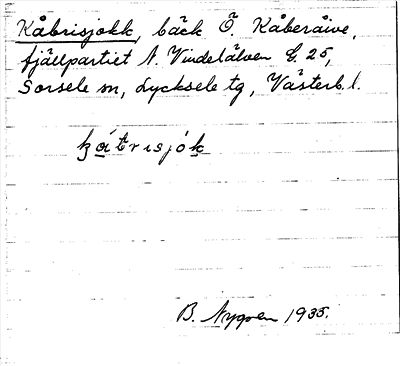 Kåbrisjokk, bäck Ö. Kåberåive,
fjällpartiet N. Vindelälven G. 25,
Sorsele sn, Lycksele tg, Västerb. l.
kátrisjók
B. Nygren 1935.